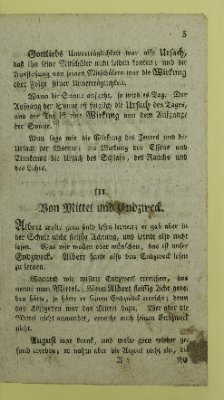 5
Gottliebs Unverträglichkeit war also Ursach,
daß ihn seine Mitschüler nicht leiden konten; und die
von jenen Mitschülern war die Wirkung
oder Folge seiner Unverträglichkeit.
Wann die Sonne aufgeht, so wird es Tag. Der
Aufgang der Sonne ist folglich die Ursach des Tages,
und der Tag ist eine Wirkung von dem Aufgange
der Sonne.
Nun sage mir die Wirkung des Feuers und die
Ursach der Wärme; die Wirkung des Essens und
Trinkens; die Ursach des Schlafs, des Rauchs und
des Lichts.
III.
Von Mittel und Endzweck.
Albert wolte gern bald lesen lernen; er gab aber in
der Schule nicht fleißig Achtung, und lernte also nicht
lesen. Was wir wollen oder wünschen, das ist unser
Endzweck. Albert hatte also den Endzweck lesen
zu lernen.
Wodurch wir unsern Endzweck erreichen, das
nennt man Mittel. Wenn Albert fleißig Acht gege-
ben hätte, so hätte er seinen Endzweck erreicht; denn
das Achtgeben war das Mittel dazu. Wer aber die
Mittel nicht anwendet, erreicht auch seinen Endzweck
nicht.
August war krank, und wolte gern wieder ge-
sund werden; er nahm aber die Arznei nicht ein, die
A